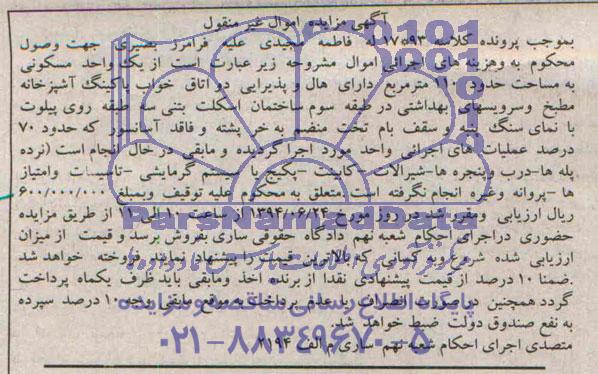 آگهی مزایده اموال غیر منقول
بموجب پرونده کلاسه ۱۷۰۵۹۳ له فاطمه مجیدی علیه فرامرز بصیری جهت وصول
محکوم به وهزینه های اجرائی اموال مشروحه زیر عبارت است از یک واحد مسکونی
به مساحت حدود ۱۱۰ مترمربع دارای هال و پذیرایی دو اتاق خواب باکینگ آشپزخانه
مطبخ وسرویسهای بهداشتی در طبقه سوم ساختمان اسکلت بتنی سه طبقه روی پیلوت
با نمای سنگ بنیه و سقف بام تحت منضم به خر پشته و فاقد آسانسور که حدود ۷۰
درصد عملیات های اجرائی واحد مورد اجرا گردیده و مابقی در حال انجام است (نرده
پله ها-درب وپنجره ها-شیرالات - کابینت -پکیج یا سیستم گرمایشی -تاسیسات وامتیاز
ها -پروانه وغیره انجام نگرفته است متعلق به محکوم علیه توقیف وبمبلغ ۶۰۰/۰۰۰/۰۰۰
ریال ارزیابی ومقرر شد در روز مورخ ۱۳۹۴/۰۶/۲۴ از ساعت ۱۰ الی ۱۱ از طریق مزایده
حضوری دراجرای احکام شعبه نهم دادگاه حقوقی ساری بفروش برسد و قیمت از میزان
ارزیابی شده شروع وبه کسانی که بالاترین قیمت را پیشنهاد نمایند فروخته خواهد شد
.ضمنا ۱۰ درصد از قیمت پیشنهادی نقدا از برنده اخذ ومابقی باید ظرف یکماه پرداخت
گردد همچنین در صورت انصراف یا عدم پرداخت به موقع مابقی وجه ۱۰ درصد سپرده
به نفع صندوق دولت ضبط خواهد شد.
متصدی اجرای احکام شعبه نهم ساری م الف ۲۱۹۴
ParsNamadData
پایگاه اطلاع رسانی مناقصه و مزایده
۰۲۱-۸۸۳۴۹۶۷۰-۵